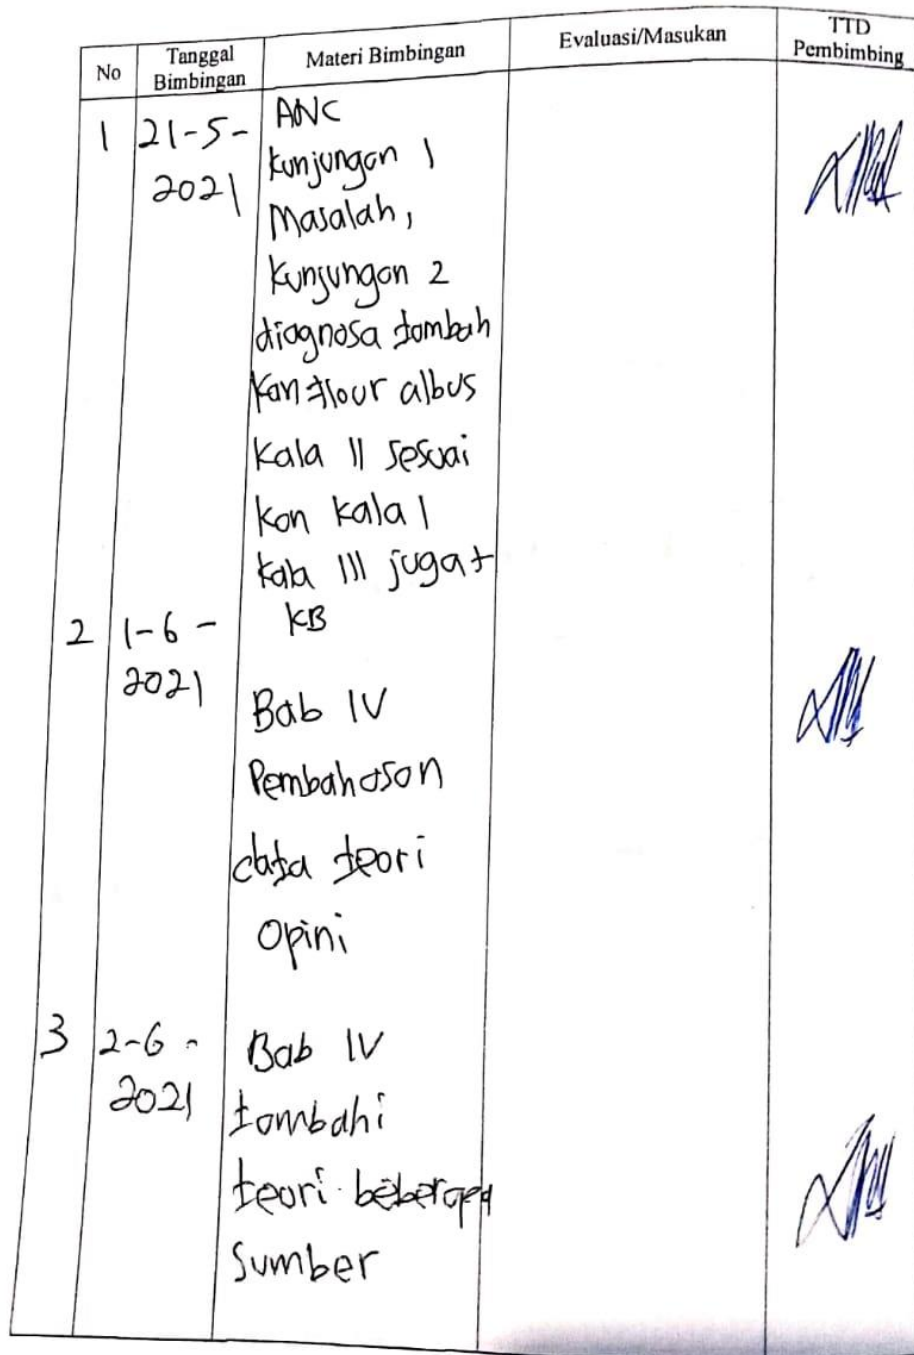 No Tanggal Bimbingan Materi Bimbingan Evaluasi/Masukan TTD Pembimbing
1 21-5- ANC
2021 kunjungan 1
Masalah,
kunjungan 2
diagnosa tambah
kan flour albus
kala II sesuai
kan kala I
kala III juga +
KB
2 1-6-
2021 Bab IV
Pembahasan
data teori
Opini
3 2-6- Bab IV
2021 tambahi
teori beberapa
Sumber